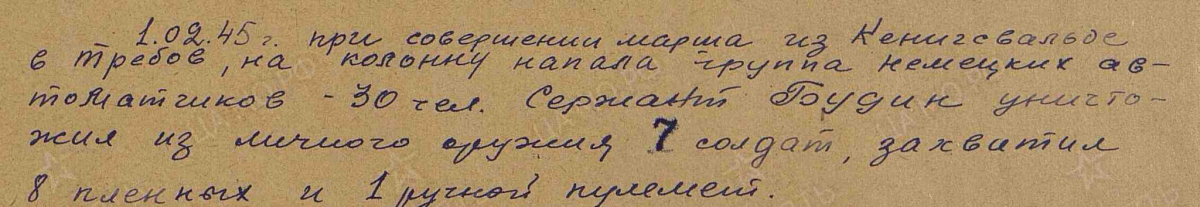 1.02.45 г. при совершении марша из Кенигсвальде
в требов, на колонну напала группа немецких ав-
томатчиков - 30 чел. Сержант Будин уничто-
жил из личного оружия 7 солдат, захватил
8 пленных и 1 ручной пулемет.